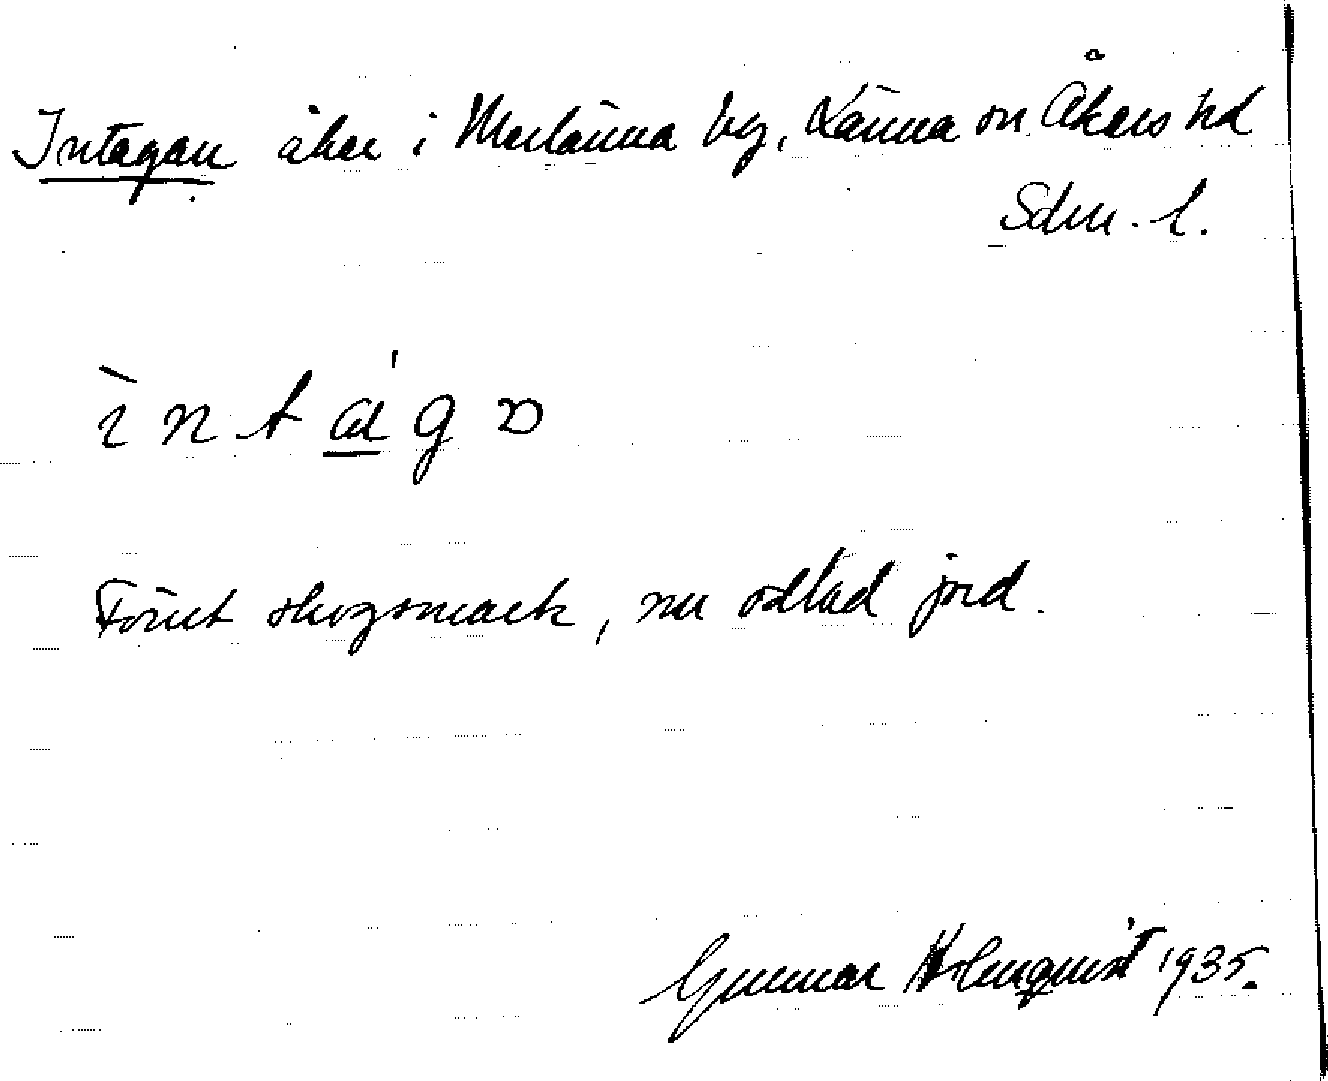 Intagan åker i Merlänna by, Länna sn. Åkers hd
Sdm. l.
ìntág
Förut skogsmark, nu odlad jord.
Gunnar Holmquist 1935.